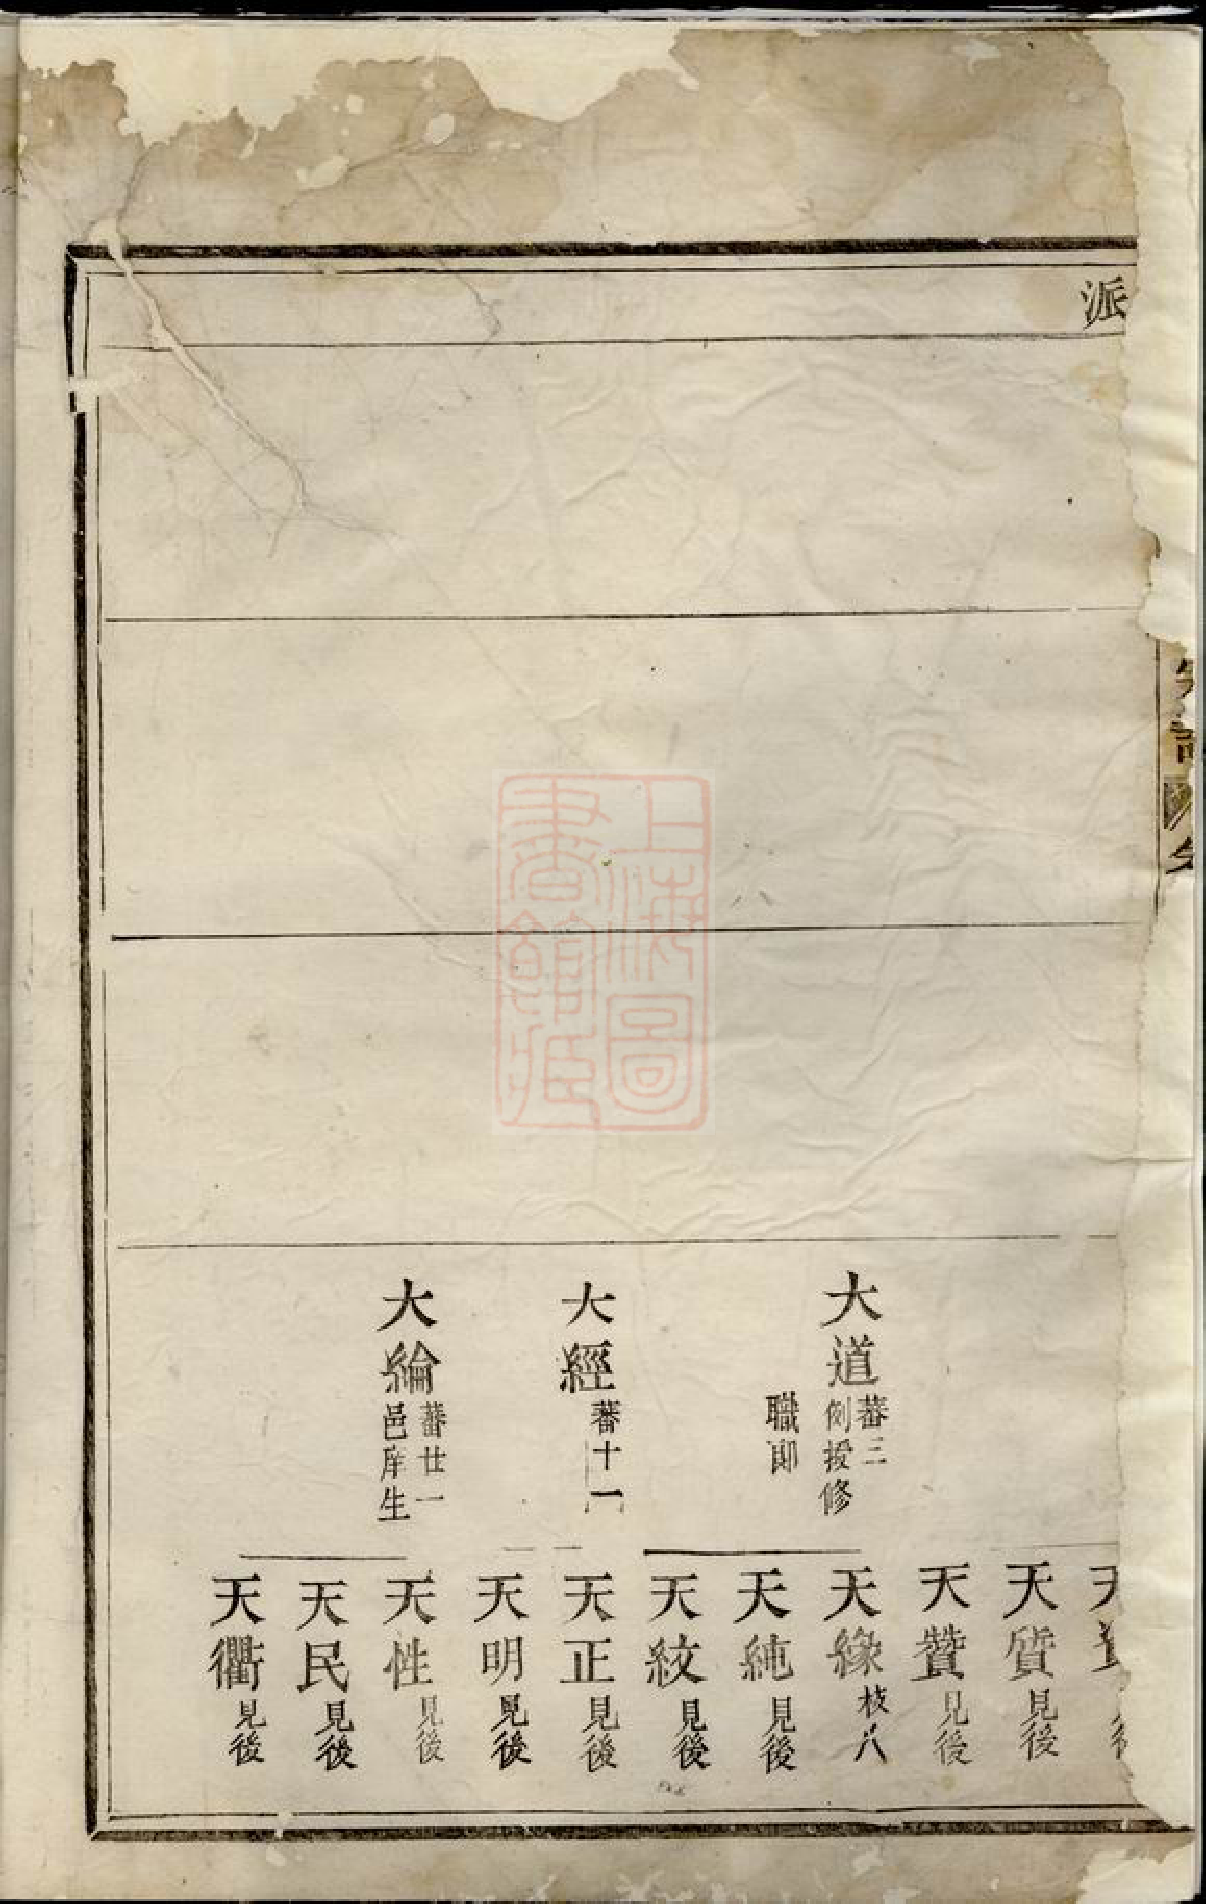 派
大道 蕃三 例授修
職郎
大經 蕃十一
大綸 蕃廿一 邑庠生
天質 見後
天贊 見後
天緣 枝八
天純 見後
天紋 見後
天正 見後
天明 見後
天性 見後
天民 見後
天衢 見後
上海圖
書館藏